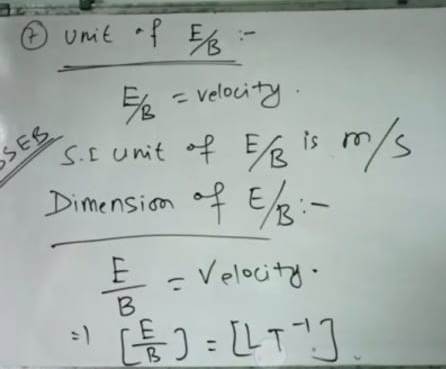 ⑦ Unit of E/B :-
E/B = velocity.
SSEB
S.I unit of E/B is m/s
Dimension of E/B :-
E/B = Velocity.
⇒ [E/B] = [LT⁻¹].